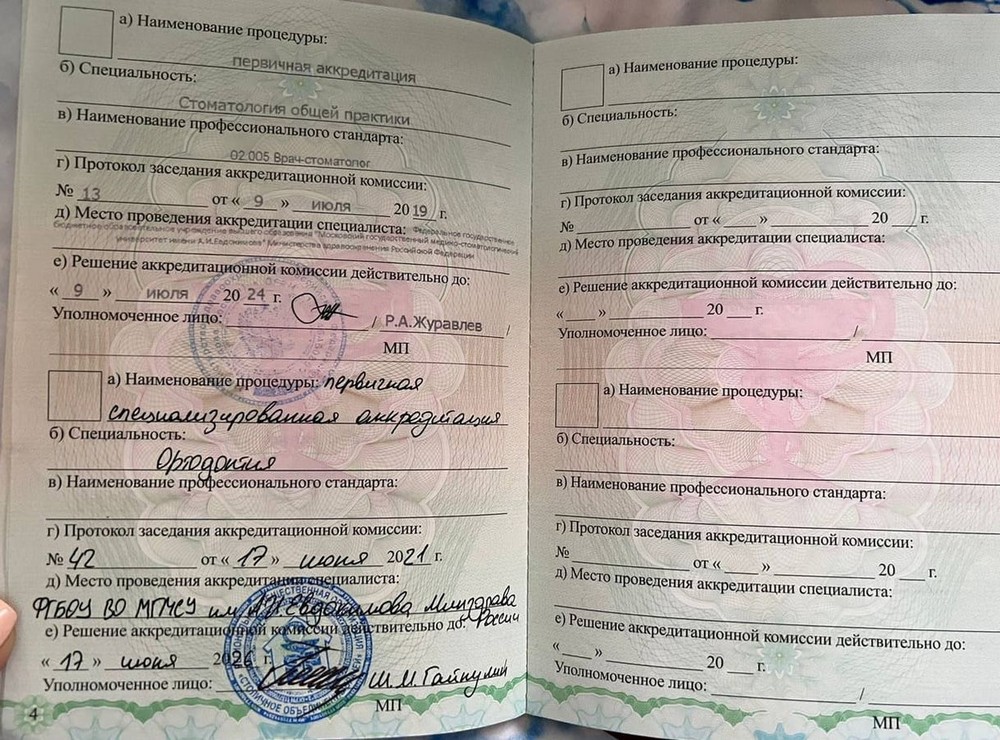 а) Наименование процедуры:
первичная аккредитация
б) Специальность:
Стоматология общей практики
в) Наименование профессионального стандарта:
02.005 Врач-стоматолог
г) Протокол заседания аккредитационной комиссии:
№ 13 от « 9 » июля 20 19 г.
д) Место проведения аккредитации специалиста: Федеральное государственное
бюджетное образовательное учреждение высшего образования "Московский государственный медико-стоматологический
университет имени А.И.Евдокимова" Министерства здравоохранения Российской Федерации
е) Решение аккредитационной комиссии действительно до:
« 9 » июля 20 24 г.
Уполномоченное лицо: / Р.А.Журавлев /
МП
а) Наименование процедуры: первичная
специализированная аккредитация
б) Специальность:
Ортодонтия
в) Наименование профессионального стандарта:
г) Протокол заседания аккредитационной комиссии:
№ 42 от « 17 » июня 2021 г.
д) Место проведения аккредитации специалиста:
ФГБОУ ВО МГМСУ им. А.И. Евдокимова Минздрава
е) Решение аккредитационной комиссии действительно до: России
« 17 » июня 2026 г.
Уполномоченное лицо:
МП
4
а) Наименование процедуры:
б) Специальность:
в) Наименование профессионального стандарта:
г) Протокол заседания аккредитационной комиссии:
№ от « » 20 г.
д) Место проведения аккредитации специалиста:
е) Решение аккредитационной комиссии действительно до:
« » 20 г.
Уполномоченное лицо: /
МП
а) Наименование процедуры:
б) Специальность:
в) Наименование профессионального стандарта:
г) Протокол заседания аккредитационной комиссии:
№ от « » 20 г.
д) Место проведения аккредитации специалиста:
е) Решение аккредитационной комиссии действительно до:
« » 20 г.
Уполномоченное лицо: /
МП